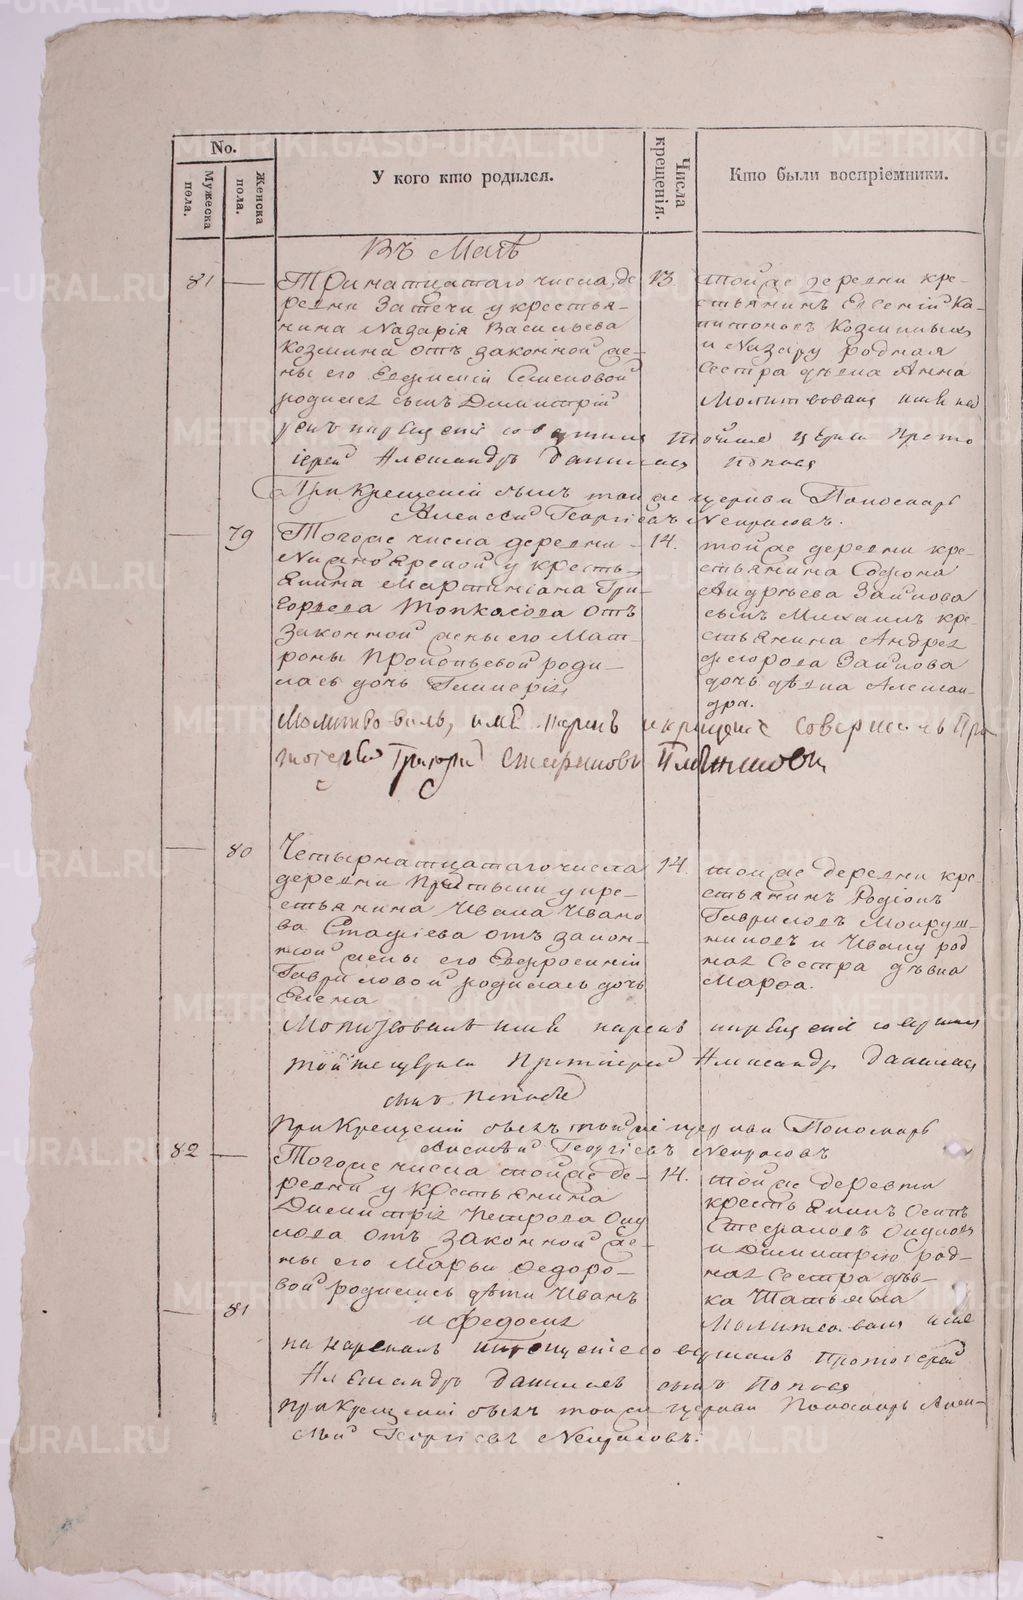 No.
Мужеска пола.
Женска пола.
У кого кто родился.
Числа крещенія.
Кто были воспріемники.
Въ Маѣ
81
Тринатцатаго числа, де-
ревни Затечи у крестья-
нина Назарія Васильева
Козмина отъ законной же-
ны его Евфиміи Семеновой
родился сынъ Димитрій
13
тойже деревни кре-
стьянинъ Евгеній Ка-
питоновъ Козминыхъ
и Назару родная
сестра дѣвка Анна
Молитвовалъ имя на
рекъ и крещеніе совершилъ тойже церкви Прото
іерей Александръ Данилов Попов
При Крещеніи былъ тойже церкви Пономарь
Алексѣй Георгіевъ Некрасовъ.
79
Тогоже числа деревни
у кресть-
янина Мартиніана Гри-
горьева Топкасова отъ
законной жены его Мат-
роны Прокопьевой роди-
лась дочь Гликерія
14.
тойже деревни кре-
стьянина Софона
Андреева Заикова
сынъ Михаилъ кре-
стьянина Андрея
Федорова Заикова
дочь дѣвка Алексан-
дра.
Молитвовалъ, имя нарекъ и крещеніе совершилъ Про
тоіерей Григорій
80
Четырнатцатаго числа
деревни у кре-
стьянина Ивана Ивано
ва Стафіева отъ закон-
ной жены его Евфросиніи
Гавриловой родилась дочь
Елена
14.
тойже деревни кре
стьянинъ Родіонъ
Гавриловъ Мокруш-
никовъ и Ивану род
ная Сестра дѣвка
Марфа.
Молитвовалъ имя нарекъ и крещеніе совершилъ
тойже церкви Протоіерей Александръ Данилов
сынъ Попов
При Крещеніи былъ тойже церкви Пономарь
Алексѣй Георгіевъ Некрасовъ
82
Тогоже числа тойже де-
ревни у крестьянина
Димитрія Петрова Оку
лова отъ законной же-
ны его Марьи Федоро-
вой родились дѣти Иванъ
81
и Федосья
14.
тойже деревни
крестьянинъ Осипъ
Стефановъ Окуловъ
и Димитрію род-
ная Сестра дѣв-
ка Татьяна
Молитвовалъ имя
на нарекалъ и крещеніе совершалъ Протоіерей
Александръ Данилов сынъ Попов
При Крещеніи былъ тойже церкви Пономарь Алек-
сѣй Георгіевъ Некрасовъ.
METRIKI.GASO-URAL.RU